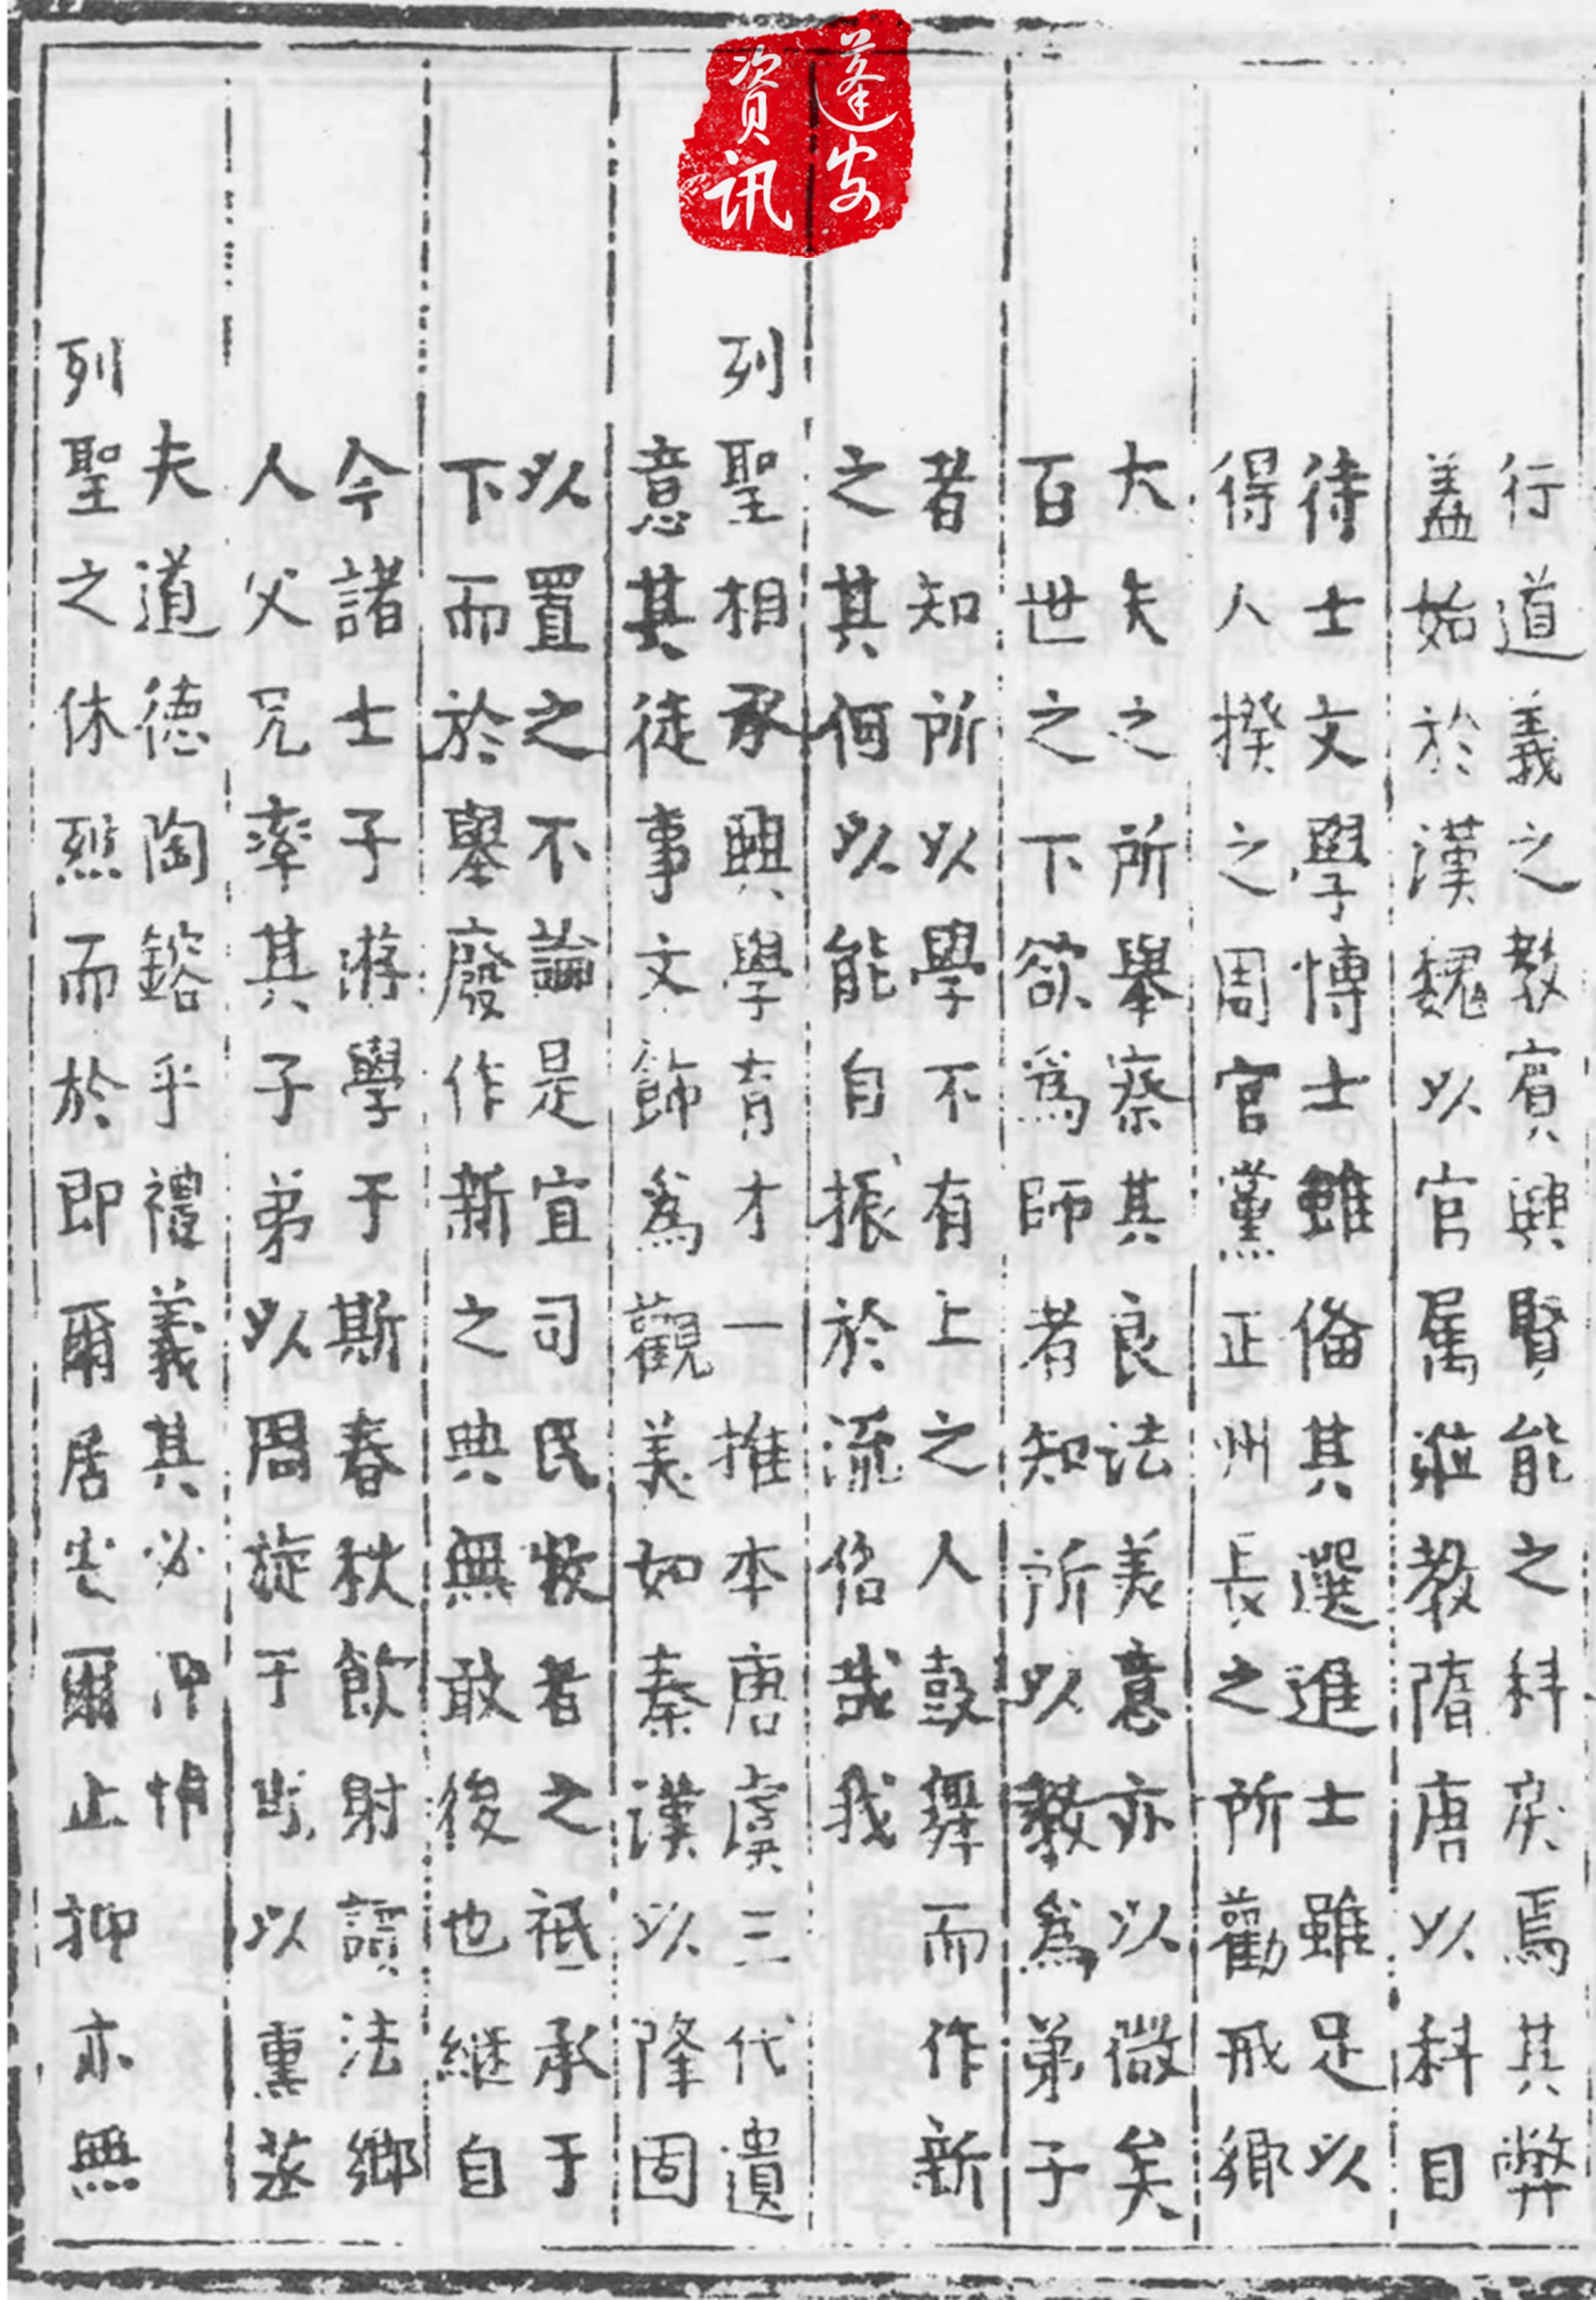 蓬安
资讯
行道義之教賓興賢能之科戾焉其弊
盖始於漢魏以官属涖教隋唐以科目
待士文學博士雖備其選進士雖足以
得人揆之周官黨正州長之所勸戒鄉
大夫之所舉察其良法美意亦以微矣
百世之下欲爲師者知所以教爲弟子
者知所以學不有上之人鼓舞而作新
之其何以能自振於流俗哉我
列聖相承興學育才一推本唐虞三代遺
意其徒事文飾爲觀美如秦漢以降固
以置之不論是宜司民牧者之祗承于
下而於舉廢作新之典無敢後也継自
今諸士子游學于斯春秋飲射讀法鄉
人父兄率其子弟以周旋于出以熏蒸
夫道德陶鎔乎禮義其必
列聖之休烈而於即爾居爾止抑亦無